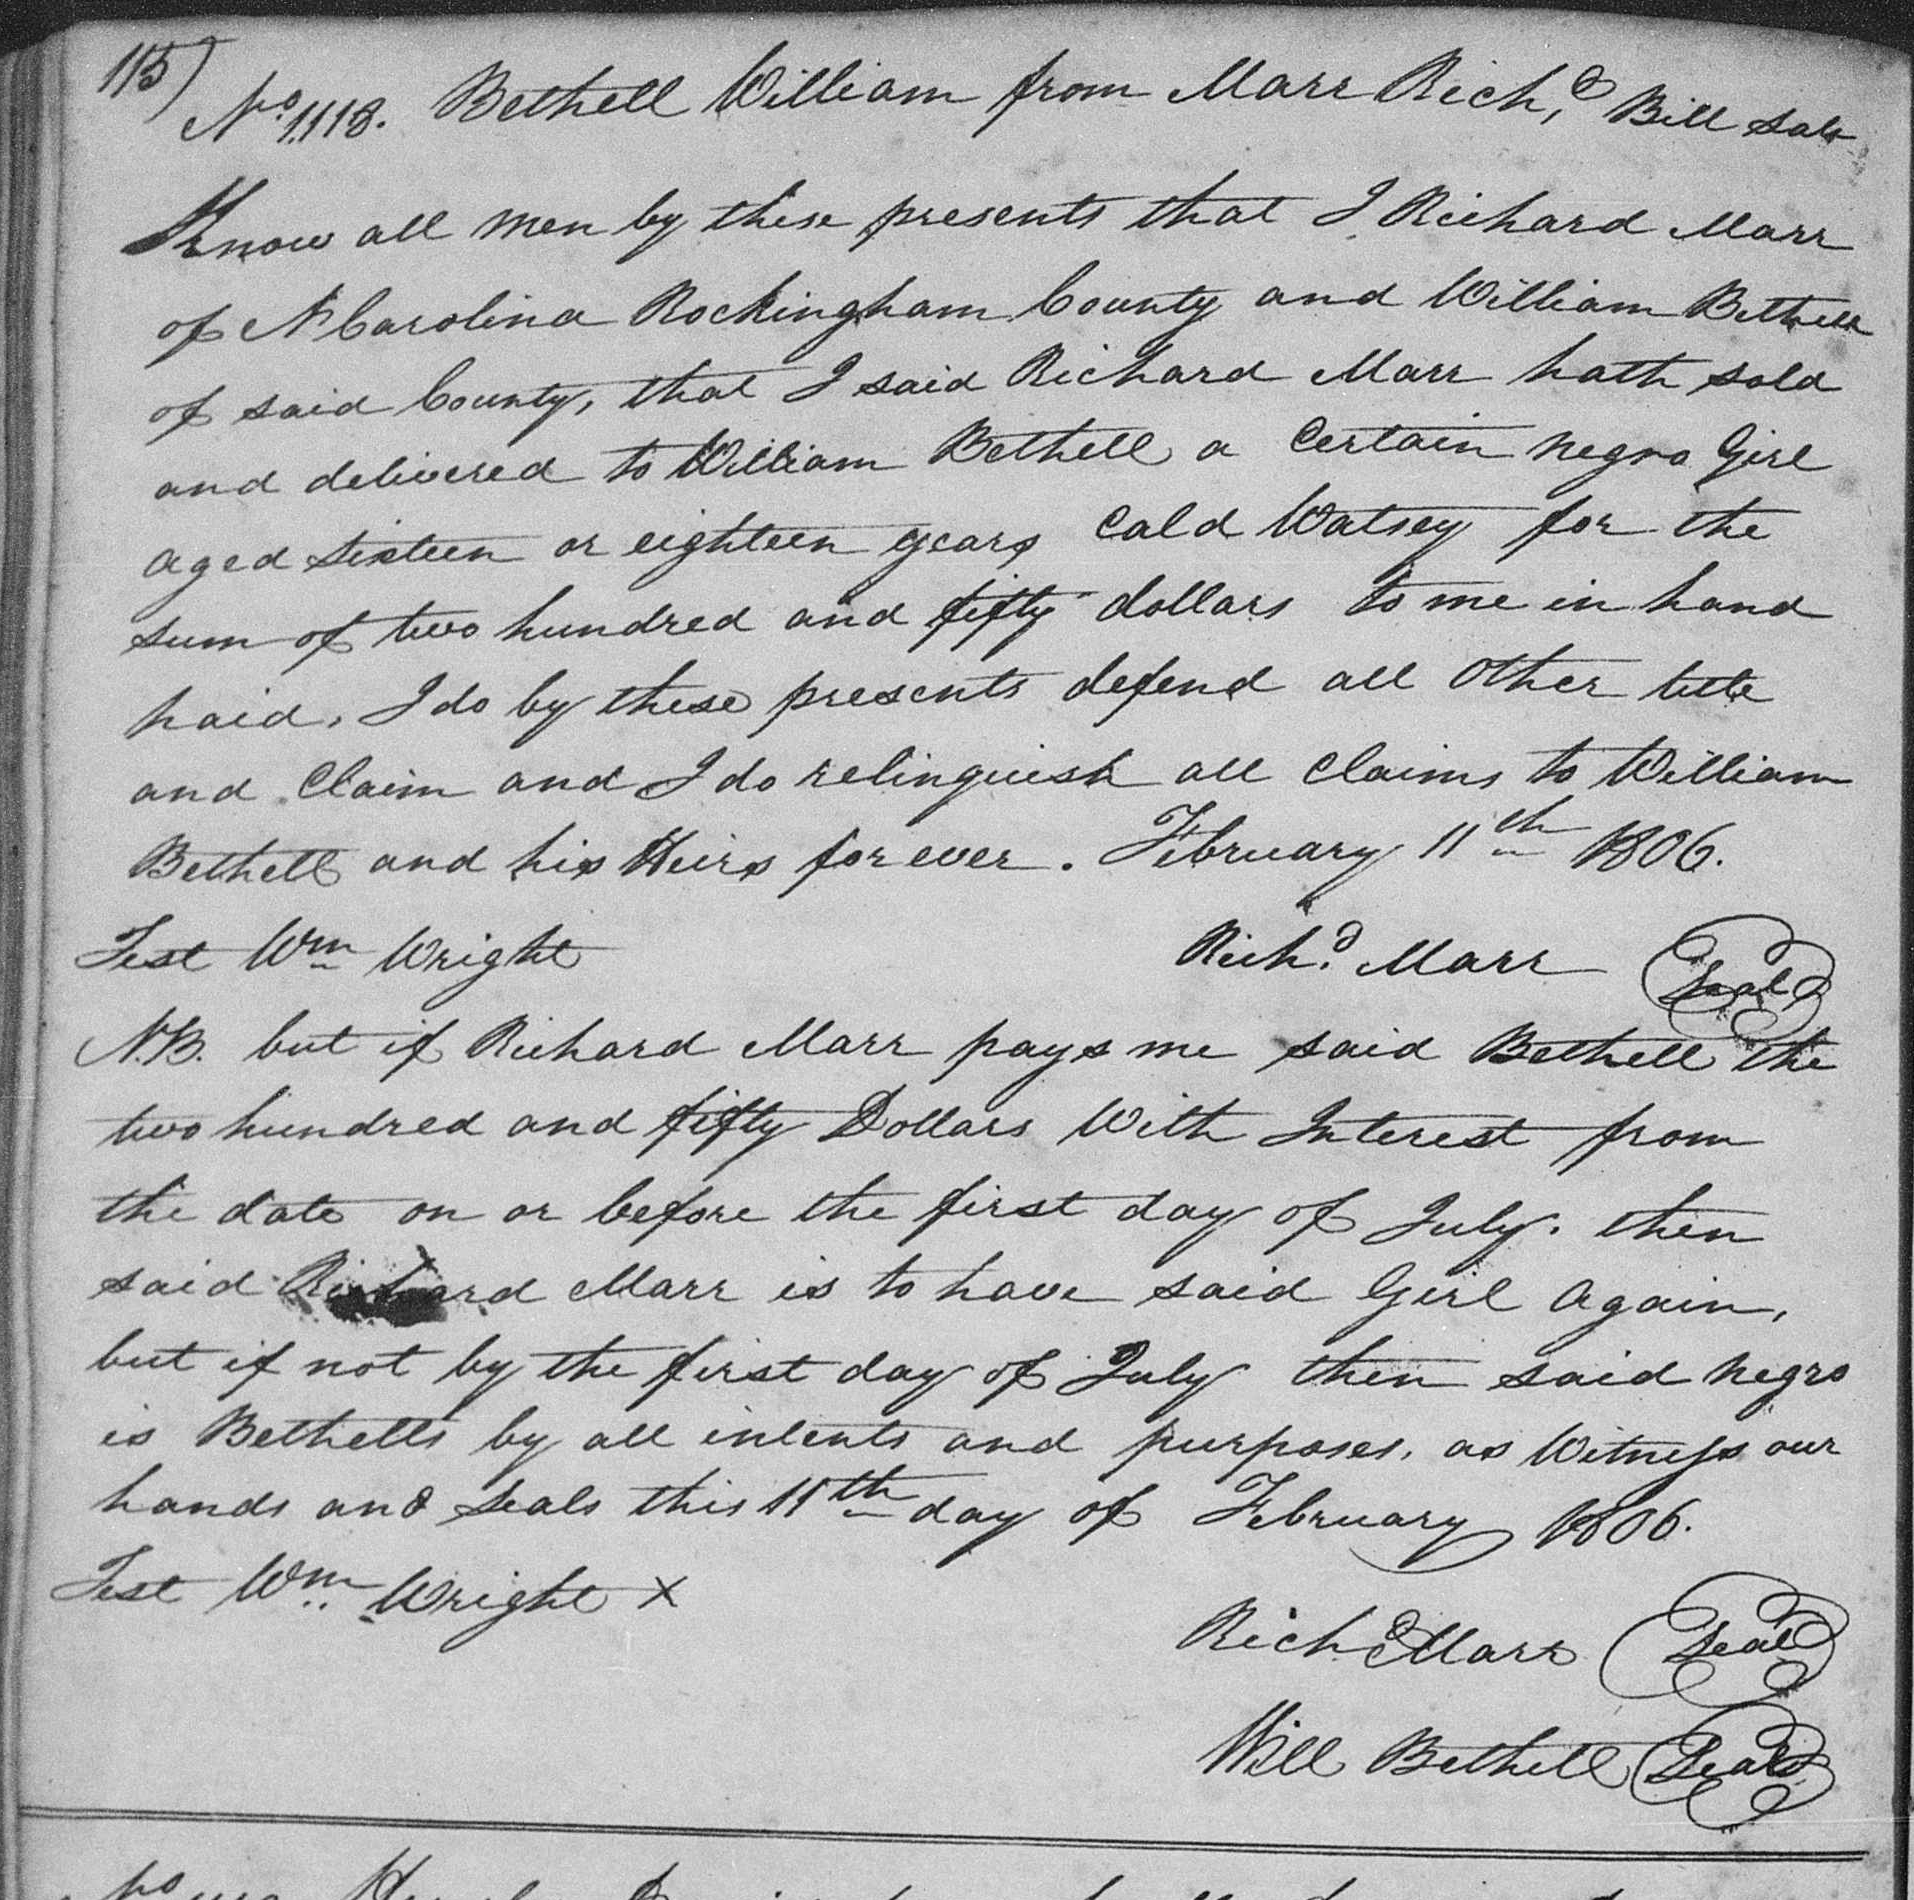 115)
No. 1118. Bethell William from Marr Richd, Bill Sale
Know all men by these presents that I Richard Marr
of N Carolina Rockingham County and William Bethell
of said County, that I said Richard Marr hath sold
and delivered to William Bethell a Certain negro Girl
aged sixteen or eighteen years Cald Watsey for the
sum of two hundred and fifty dollars to me in hand
paid, I do by these presents defend all other title
and Claim and I do relinquish all claims to William
Bethell and his Heirs for ever. February 11th 1806.
Test Wm Wright Richd. Marr Seal
N.B. but if Richard Marr pays me said Bethell the
two hundred and fifty Dollars With Interest from
the date on or before the first day of July. then
said Richard Marr is to have said Girl Again,
but if not by the first day of July then said negro
is Bethells by all intents and purposes, as Witness our
hands and Seals this 11th day of February 1806.
Test Wm Wright X
Richd Marr Seal
Will Bethell Seal